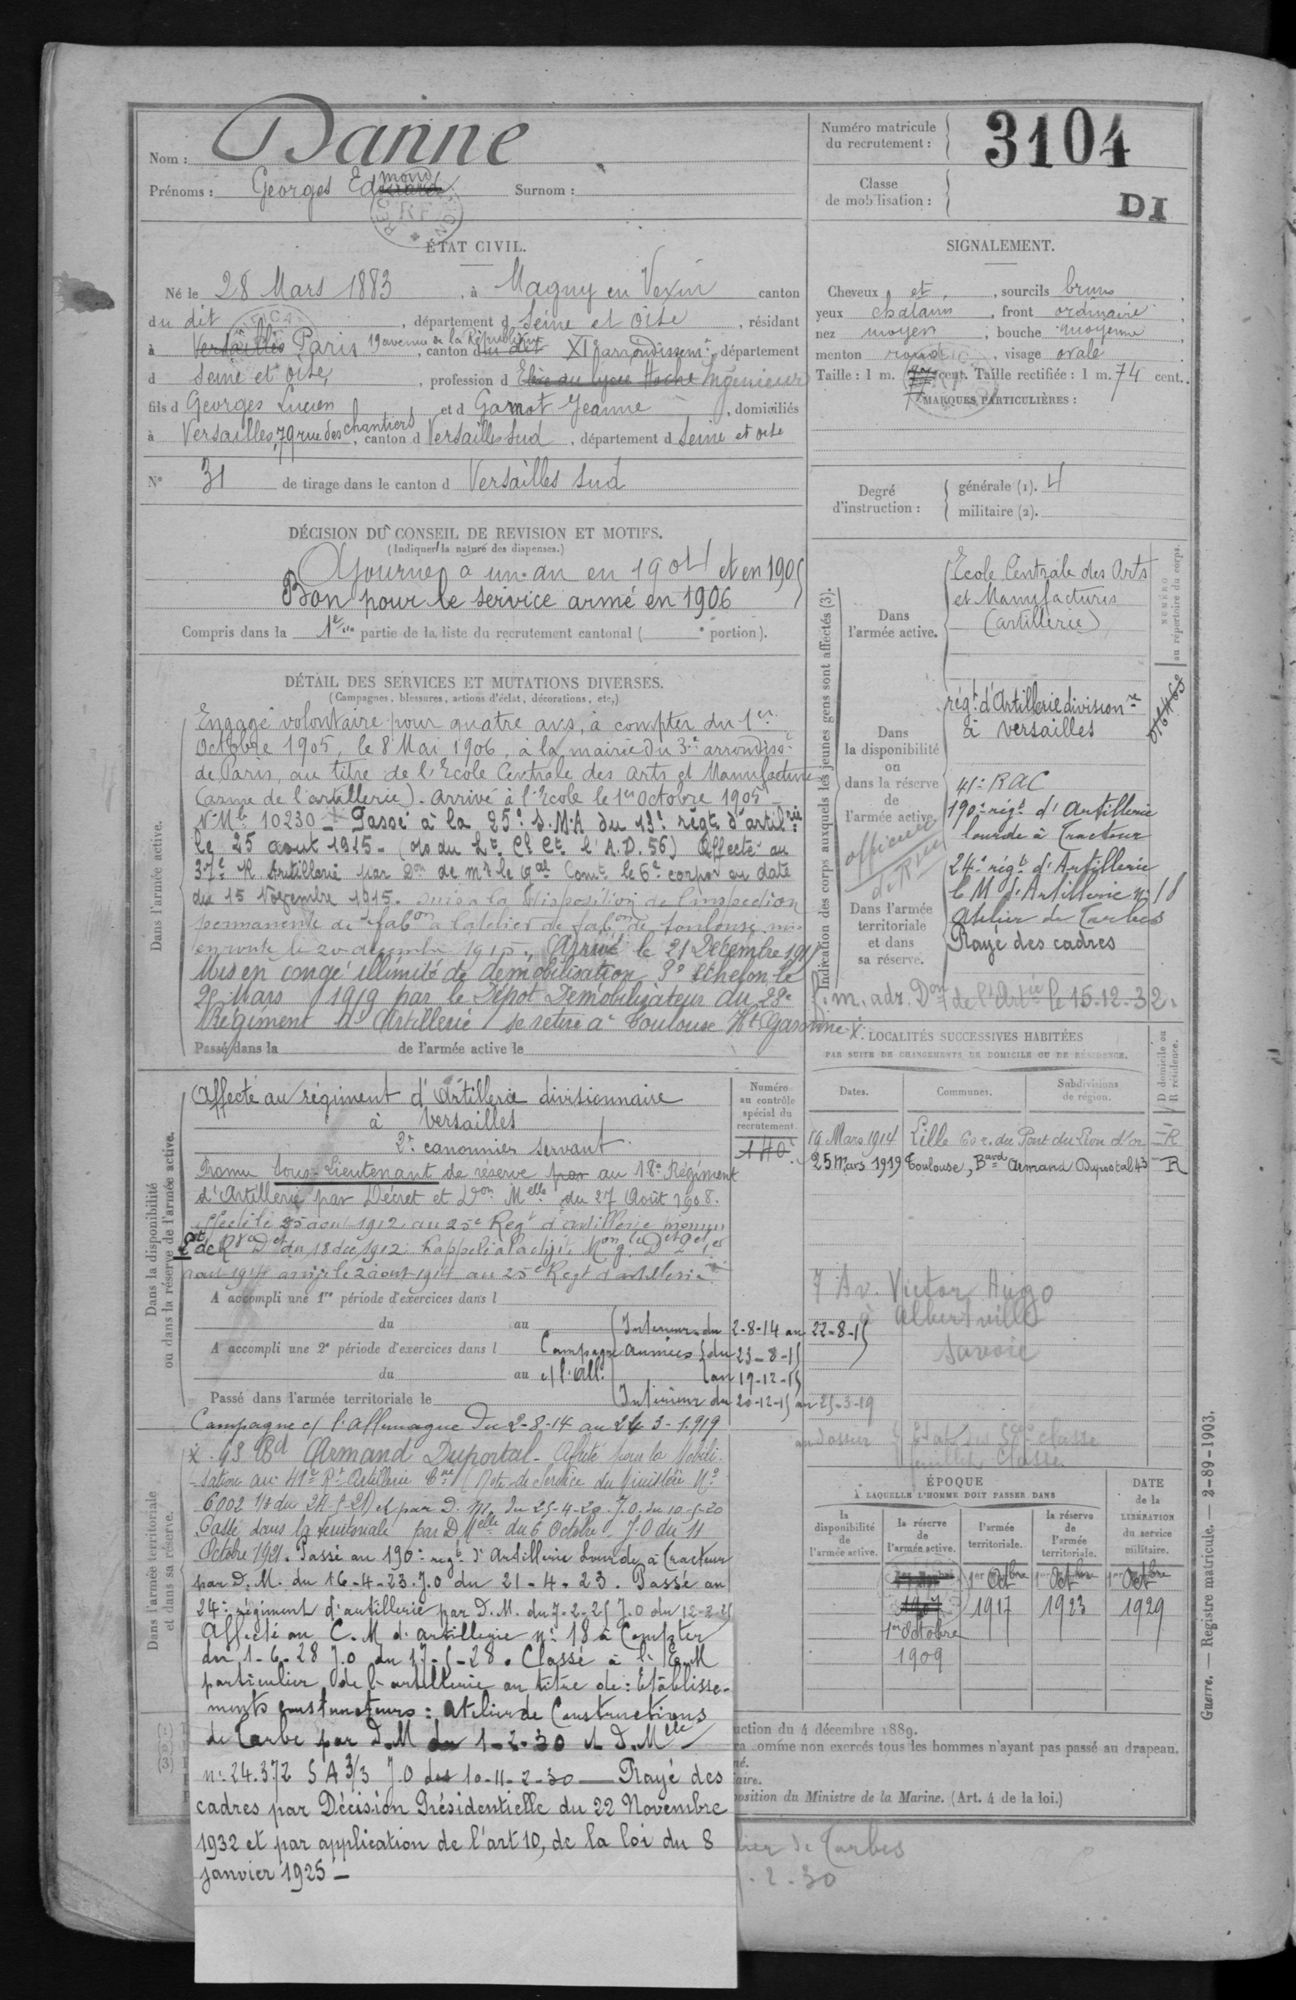 Nom : Danne
Prénoms : Georges Edmond Surnom :
Numéro matricule du recrutement : 3104
Classe de mobilisation : DI
ÉTAT CIVIL.
Né le 28 Mars 1883, à Magny en Vexin canton
du dit, département d Seine et Oise, résidant
à Versailles Paris 19 avenue de la République, canton du dit XI arrondissemt, département
d Seine et Oise, profession d Elève du lycée Hoche Ingénieur
fils d Georges Lucien et d Garnot Jeanne, domiciliés
à Versailles, 79 rue des chantiers, canton d Versailles Sud, département d Seine et Oise
N° 31 de tirage dans le canton d Versailles Sud
SIGNALEMENT.
Cheveux et, sourcils bruns
yeux chatains, front ordinaire
nez moyen, bouche moyenne
menton rond, visage ovale
Taille : 1 m. cent. Taille rectifiée : 1 m. 74 cent.
MARQUES PARTICULIÈRES :
Degré d'instruction : générale (1). 4
militaire (2).
DÉCISION DU CONSEIL DE REVISION ET MOTIFS.
(Indiquer la nature des dispenses.)
Ajourné à un an en 1904 et en 1905
Bon pour le service armé en 1906
Compris dans la 1re partie de la liste du recrutement cantonal ( e portion).
DÉTAIL DES SERVICES ET MUTATIONS DIVERSES.
(Campagnes, blessures, actions d'éclat, décorations, etc.)
Dans l'armée active.
Engagé volontaire pour quatre ans, à compter du 1er
Octobre 1905, le 8 Mai 1906, à la mairie du 3e arrondisst
de Paris, au titre de l'Ecole Centrale des Arts et Manufactures
(arme de l'artillerie). Arrivé à l'Ecole le 1er Octobre 1905
N° Mle 10230 - Passé à la 25e S.M.A du 13e régt d'artilrie
le 25 aout 1915 - A.D. 56) Affecté au
37e R Artillerie par Don de Mr le Gal Comt le 6e corps en date
du 15 Novembre 1915. mis à la disposition de l'inspection
permanente de fabon à l'atelier de fabon de Toulouse mis
en route le 20 décembre 1915, Arrivé le 21 Décembre 1915
Mis en congé illimité de démobilisation 3e échelon le
Mars 1919 par le Dépôt Démobilisateur du 23e
Régiment d'Artillerie se retire à Toulouse Hte Garonne x
Passé dans la de l'armée active le
Indication des corps auxquels les jeunes gens sont affectés (3).
NUMÉRO au répertoire du corps.
Dans l'armée active.
Ecole Centrale des Arts
et Manufactures
(artillerie)
Dans la disponibilité ou dans la réserve de l'armée active.
régt d'Artillerie divisionre
à Versailles
41e RAC
190e régt d'Artillerie
lourde à Tracteur
officier
24e régt d'Artillerie
C M d'Artillerie n° 18
Dans l'armée territoriale et dans sa réserve.
Atelier de Tarbes
Rayé des cadres
f. m. adr. Don de l'Artie le 15.12.32.
LOCALITÉS SUCCESSIVES HABITÉES
PAR SUITE DE CHANGEMENTS DE DOMICILE OU DE RÉSIDENCE.
Dates. Communes. Subdivisions de région. D domicile ou R résidence.
19 Mars 1914 Lille 60 r. du Pont du Lion d'or R
25 Mars 1919 Toulouse, Bard Armand Duportal 43 R
7 Av. Victor Hugo
à Albertville
Savoie
Dans la disponibilité ou dans la réserve de l'armée active.
Numéro au contrôle spécial du recrutement.
140
Affecté au régiment d'Artillerie divisionnaire
à Versailles
2e canonnier servant
Promu Sous-Lieutenant de réserve par au 18e Régiment
d'Artillerie par Décret et Don Melle du 27 Août 1908.
affecté le 25 aout 1912 au 25e Regt d'artillerie promu
Lt de Rve Dt du 18 déc 1912. Rappelé à l'activité Mon gle Dt 1er
aout 1914 arrivé le 2 aout 1914 au 25e Regt d'artillerie
A accompli une 1re période d'exercices dans l
du au
A accompli une 2e période d'exercices dans l
du au
Passé dans l'armée territoriale le
Campagne c/ l'All.
Intérieur du 2-8-14 au 22-8-15
Armées du 23-8-15
au 19-12-15
Intérieur du 20-12-15 au 25-3-19
Campagne c/ l'Allemagne Du 2-8-14 au 24 3-1919
Dans l'armée territoriale et dans sa réserve.
x. 43 Bd Armand Duportal - Affecté pour la Mobili-
sation au 41e Rt Artillerie Cne (Note de Service du Ministère N°
6002 et par D. Mle du 25-4-20 J.O. du 10-5-20
Passé dans la territoriale par D Melle du 6 Octobre J.O du 11
Octobre 1921. Passé au 190e régt d'Artillerie Lourde à Tracteur
par D. M. du 16-4-23. J.O du 21-4-23. Passé au
24e régiment d'artillerie par D.M. du 7-2-25 J.O du 12-2-25
Affecté au C. M d'artillerie n° 18 à Compter
du 1-6-28 J.O du 17-5-28. Classé à l'E.M
particulier de l'artillerie au titre de : Etablisse-
ments constructeurs : Atelier de Constructions
de Tarbe par D.M du 1-2-30 et D.Melle
n° 24.372 S A 3/3 J.O des 10-11-2-30 — Rayé des
cadres par Décision Présidentielle du 22 Novembre
1932 et par application de l'art 10, de la loi du 8
janvier 1925 —
ÉPOQUE
À LAQUELLE L'HOMME DOIT PASSER DANS
DATE de la LIBÉRATION du service militaire.
la disponibilité de l'armée active. la réserve de l'armée active. l'armée territoriale. la réserve de l'armée territoriale.
1er Octobre 1er Octbre 1er Octbre
1907 1917 1923 1929
1er Octobre
1909
(1)
(2)
(3)
uction du 4 décembre 1889.
omme non exercés tous les hommes n'ayant pas passé au drapeau.
position du Ministre de la Marine. (Art. 4 de la loi.)
lier de Tarbes
.2.30
Guerre. — Registre matricule. — 2-89-1903.